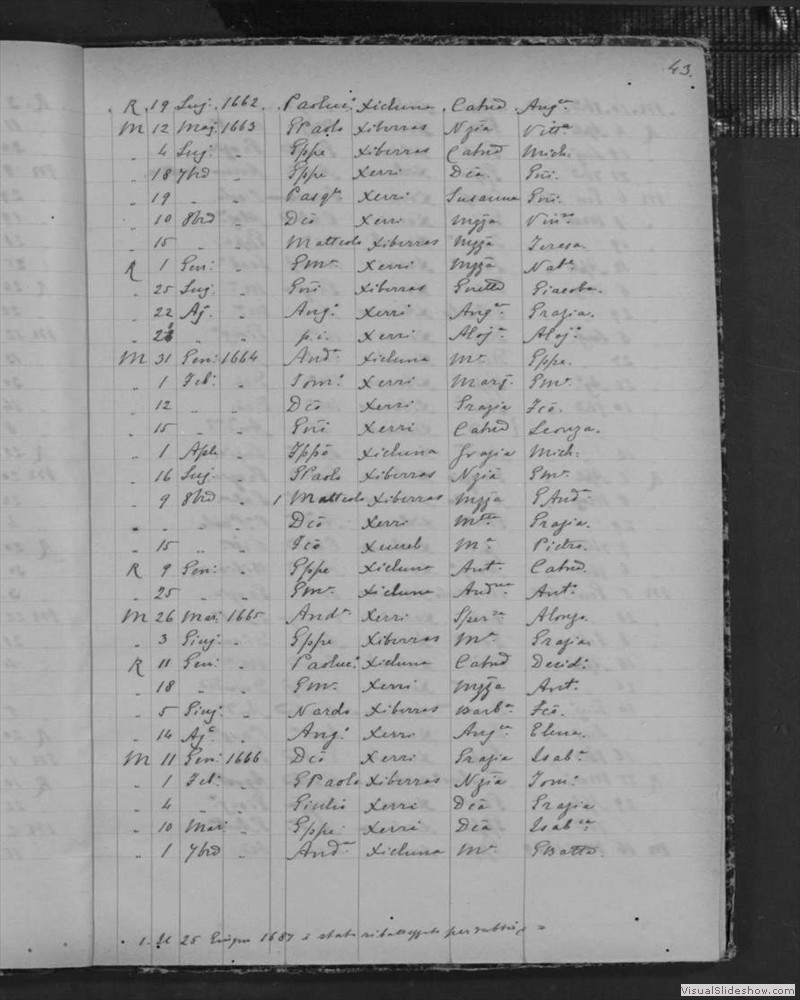 43.
R 19 Lug. 1662 Paoluc: Xicluna Catnd Angca
M 12 Mag. 1663 GPaolo Xiberras Nzia Vitta
„ 4 Lug. „ Gppe Xiberras Catnd Mich.
„ 18 7brd „ Gppe Xerri Dca Gni.
„ 19 „ „ Pasqle Xerri Susanna Gni.
„ 10 8brd „ Dco Xerri Myza
„ 15 „ „ Matteolo Xiberras Myza Teresa.
R 1 Gen: „ Gma Xerri Myza Nata
„ 25 Lug. „ Gni Xiberras Giacoba.
„ 22 Ag. „ Ang: Xerri Angca Grazia.
„ „ „ p.i. Xerri Aloja Aloja
M 31 Gen: 1664 Anda Xicluna Ma Gppe.
„ 1 Feb: „ Tom: Xerri Marg. Gma
„ 12 „ „ Dco Xerri Grazia Fco.
„ 15 „ „ Gni Xerri Catnd Leonza.
„ 1 Aple „ Fppo Xicluna Grazia Mich:
„ 16 Lug. „ GPaolo Xiberras Nzia Gma
„ 9 8brd „ 1 Matteolo Xiberras Myza GAnda
„ „ „ Dco Xerri Mtta Grazia.
„ 15 „ „ Fco Xuereb Ma Pietro.
R 9 Gen: „ Gppe Xicluna Anta Catnd.
„ 25 „ „ Gma Xicluna Andna Anta
M 26 Mar. 1665 Anda Xerri Sperza Alonza.
„ 3 Giug. „ Gppe Xiberras Ma Grazia.
R 11 Gen: „ Paoluc: Xicluna Catnd Decid:
„ 18 „ „ Gma Xerri Myza Ant.
„ 5 Giug. „ Nardo Xiberras Barba Fco.
„ 14 Ago „ Ang: Xerri Angca Elena.
M 11 Gen: 1666 Dco Xerri Grazia Isaba
„ 1 Feb. „ GPaolo Xiberras Nzia Tom:
„ 4 „ „ Giulio Xerri Dca Grazia
„ 10 Mar „ Gppe Xerri Dca Isabca
„ 1 7brd „ Anda Xicluna Ma GBatta.
1. Il 25 Giugno 1687 è stato
VisualSlideshow.com